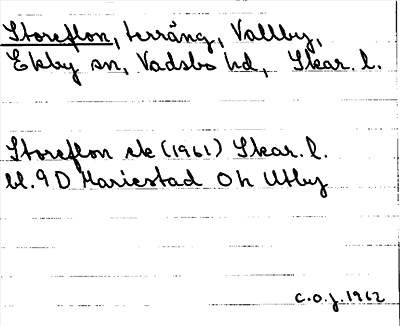 Storeflon, terräng, Vallby,
Ekby sn, Vadsbo hd, Skar. l.
Storeflon ek (1961) Skar. l.
bl. 9 D Mariestad Oh Utby
C.O.J. 1962